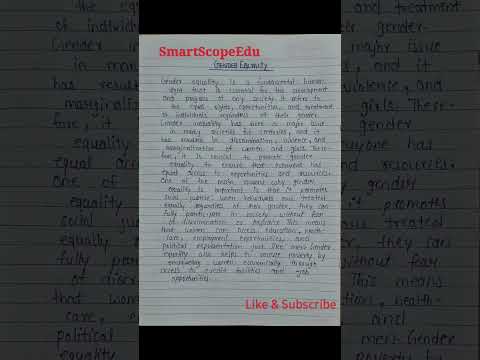 SmartScopeEdu
GENDER EQUALITY
Gender equality is a fundamental human
right that is essential for the development
and progress of any society. It refers to
the equal rights, opportunities, and treatment
of individuals regardless of their gender.
Gender inequality has been a major issue
in many societies for centuries, and it
has resulted in discrimination, violence, and
marginalization of women and girls. There-
fore, it is crucial to promote gender
equality to ensure that everyone has
equal access to opportunities and resources.
One of the main reasons why gender
equality is important is that it promotes
social justice when individuals are treated
equally regardless of their gender, they can
fully participate in society without fear
of discrimination or This means
that women can access education, health-
care, employment opportunities, and
political representation just like men. Gender
equality also helps to reduce poverty by
empowering women economically through
access to credit facilities and job
opportunities.
Like & Subscribe